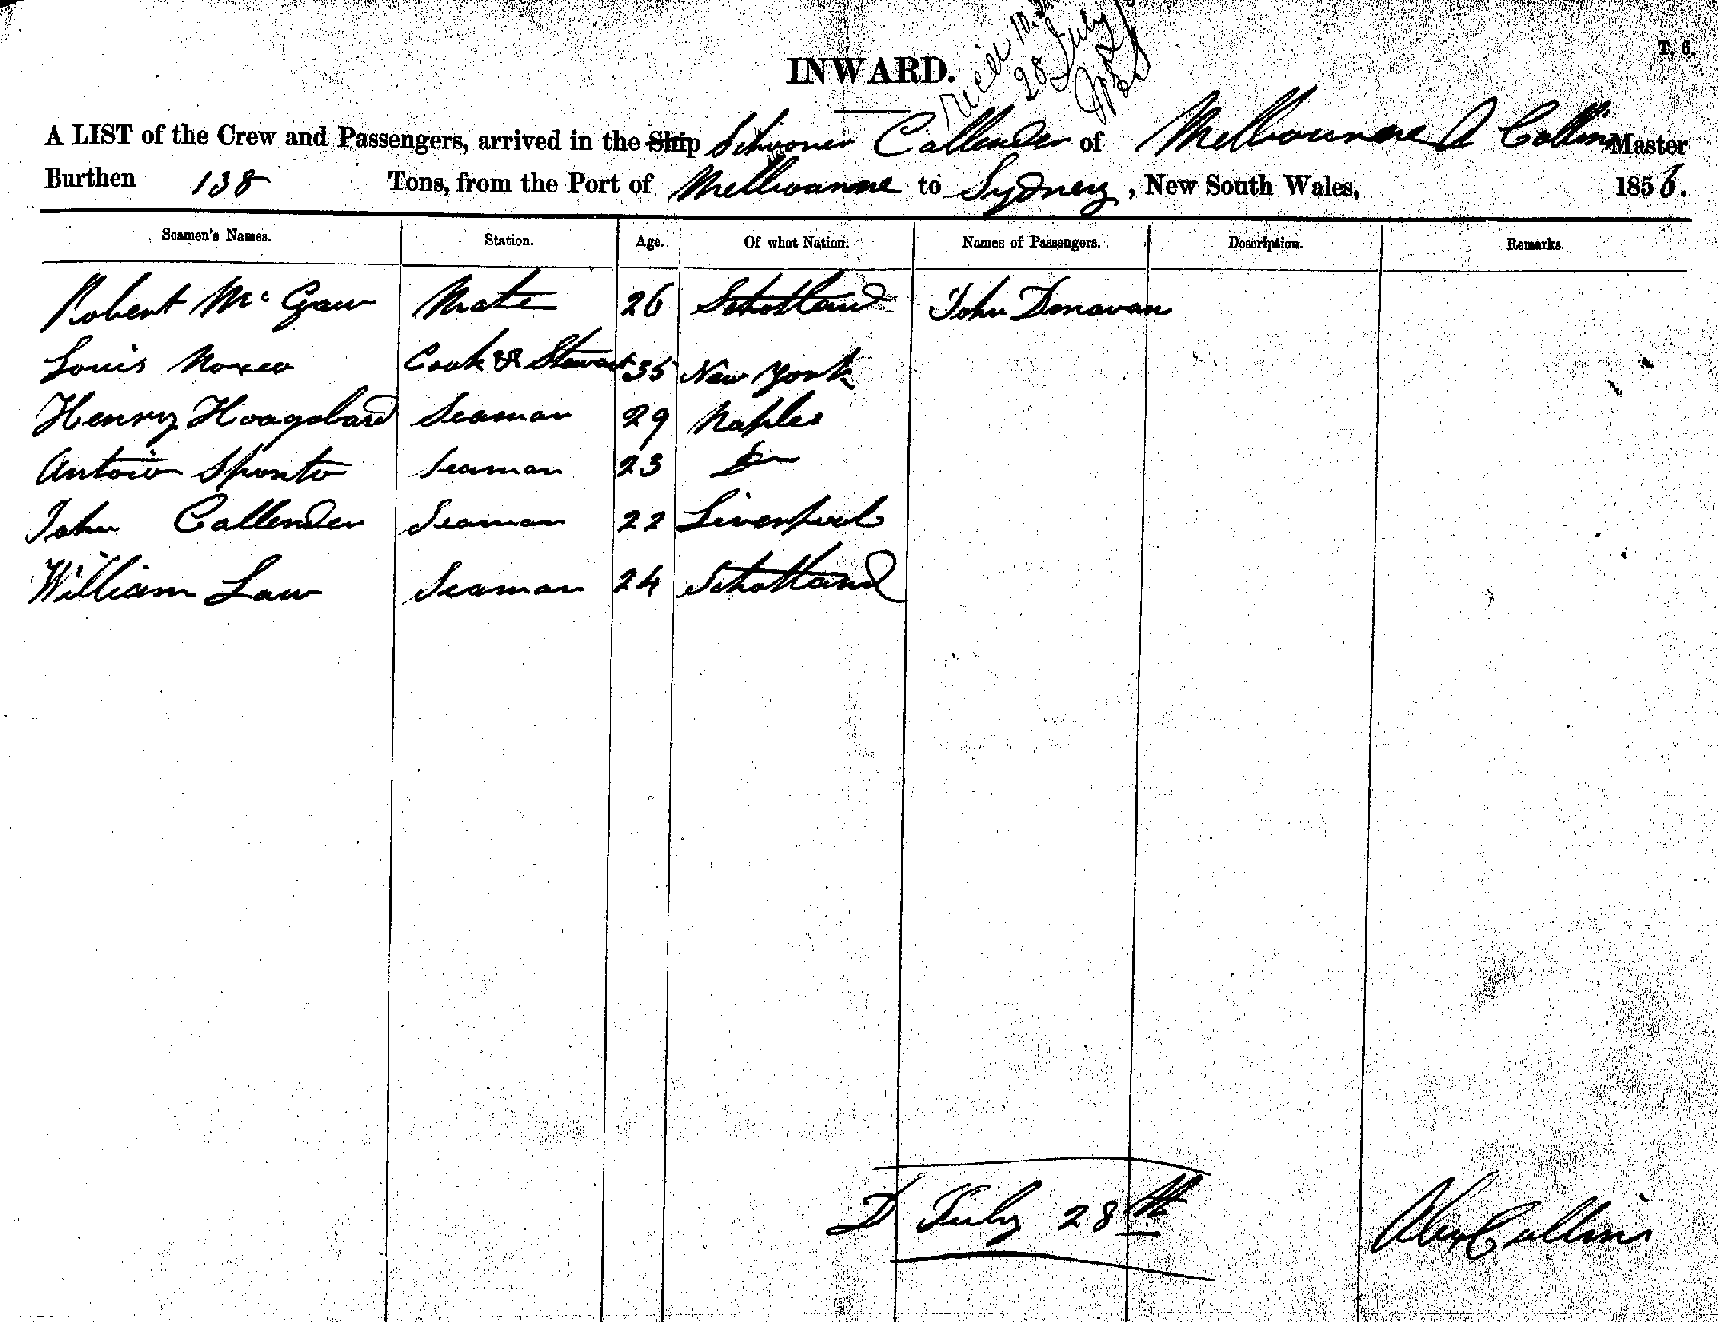 T. 6.
28 July
INWARD.
A LIST of the Crew and Passengers, arrived in the Ship Schooner Callender of Melbourne A Collins Master
Burthen 138 Tons, from the Port of Melbourne to Sydney, New South Wales, 1856.
Seamen's Names. Station. Age. Of what Nation. Names of Passengers. Description. Remarks
Robert McGraw Mate 26 Schotland John Donavan
Louis Cook & Steward 35 New York
Henry Hoogobard Seaman 29 Naples
Antoio Sponto Seaman 23 Do
John Callender Seaman 22 Liverpool
William Law Seaman 24 Schotland
D July 28th
Alex Collins